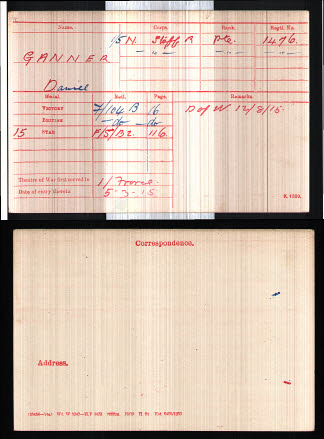 Name. Corps. Rank. Regtl. No.
1/5 N. Staff R Pte. 1476.
GANNER — " — — " — — " —
Daniel
Medal. Roll. Page. Remarks.
VICTORY F/104 B 16 D of W 12/8/15.
BRITISH — do — do
15 STAR F/5/B2. 116.
Theatre of War first served in 1/ France.
Date of entry therein 5-3-15
K. 1380.
Correspondence.
Address.